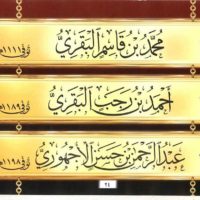 محمد بن قاسم البقري
توفي ١١١١هـ
أحمد بن رجب البقري
توفي ١١٨٩هـ
عبد الرحمن بن حسن الأجهوري
توفي ١١٩٨هـ
٢٤